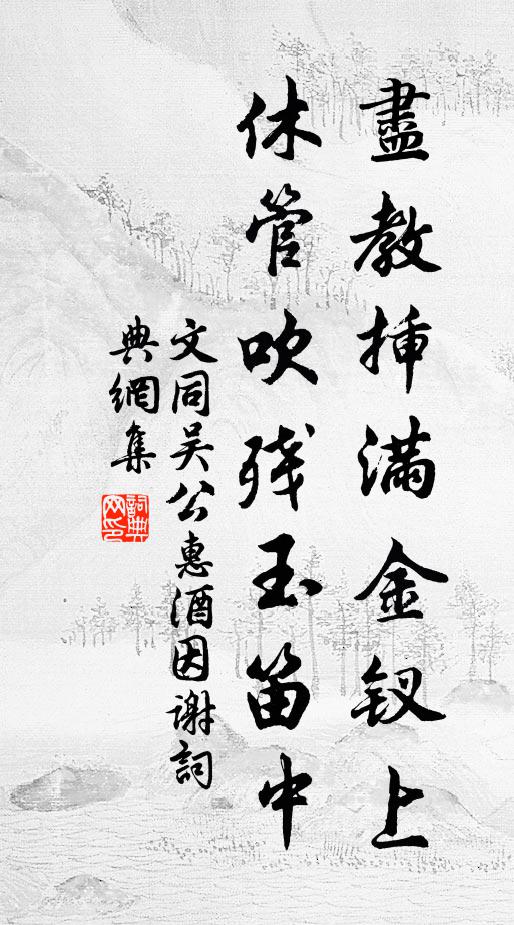 盡教揷滿金釵上
休管吹殘玉笛中
文同吴公惠酒因谢詞
典網集
詞典網印